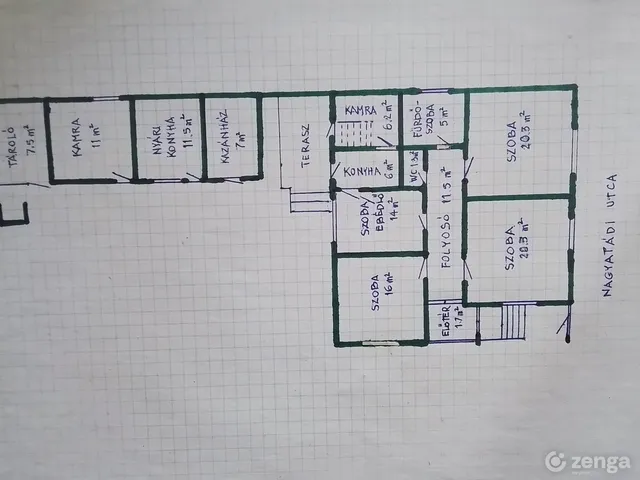 TÁROLÓ
7,5 m²
KAMRA
11 m²
NYÁRI
KONYHA
11,5 m²
KAZÁNHÁZ
7 m²
TERASZ
KAMRA
6,2 m²
FÜRDŐ-
SZOBA
5 m²
SZOBA
20,3 m²
KONYHA
6 m²
WC
SZOBA
EBÉDLŐ
14 m²
FOLYOSÓ 11,5 m²
SZOBA
20,3 m²
SZOBA
16 m²
ELŐTÉR
1,7 m²
NAGYATÁDI UTCA
zenga